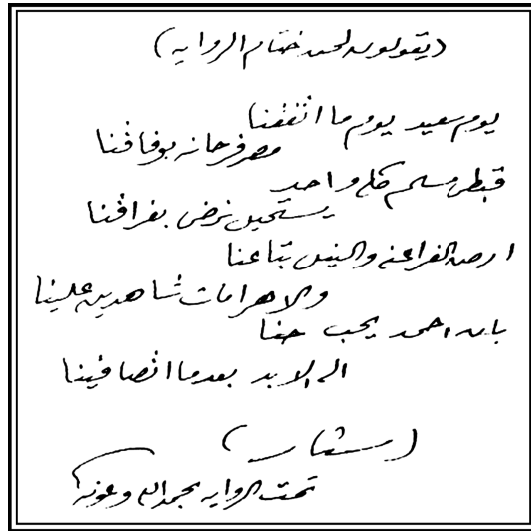 (يقولون لحن ختام الرواية)
يوم سعيد يوم ما اتفقنا
مصر فرحانه بوفاقنا
قبطى مسلم كله واحد
يستحيل نرضى بفراقنا
ارض الفراعنه والنيل بتاعنا
والاهرامات شاهدين علينا
بان احمد يحب حنا
الى الابد بعدما اتصافينا
(ستار)
تمت الروايه بحمد الله وعونه